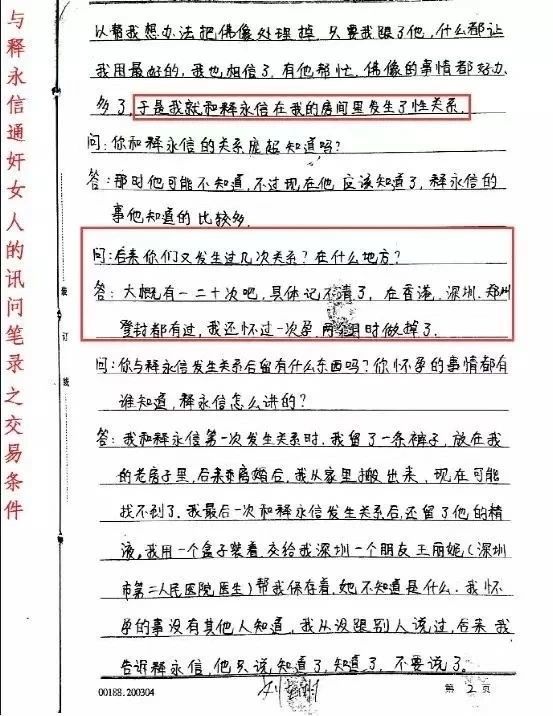 与释永信通奸女人的讯问笔录之交易条件
以帮我想办法把佛像处理掉,只要我跟了他,什么都让
我用最好的,我也相信了,有他帮忙,佛像的事情都好办
多了,于是我就和释永信在我的房间里发生了性关系.
问:你和释永信的关系庞超知道吗?
答:那时他可能不知道,不过现在他应该知道了,释永信的
事他知道的比较多.
问:后来你们又发生过几次关系?在什么地方?
答:大概有一二十次吧,具体记不清了,在香港,深圳,郑州
登封都有过,我还怀过一次孕,两个月时做掉了.
问:你与释永信发生关系后留有什么东西吗?你怀孕的事情都有
谁知道,释永信怎么讲的?
答:我和释永信第一次发生关系时,我留了一条裤子,放在我
的老房子里,后来离婚后,我从家里搬出来,现在可能
找不到了.我最后一次和释永信发生关系后,还留了他的精
液,我用一个盒子装着,交给我深圳一个朋友王丽妮(深圳
市第二人民医院医生)帮我保存着,她不知道是什么.我怀
孕的事没有其他人知道,我从没跟别人说过,后来我
告诉释永信,他只说,知道了,知道了,不要说了.
装
订
线
00188.200304
第2页